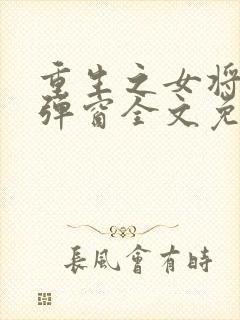 重生之女将
弹窗全文免
長風會有時